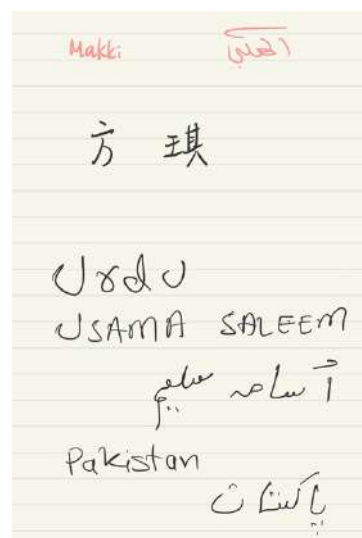 Makki المكي
方 琪
Urdu
USAMA SALEEM
أسامہ سلیم
Pakistan
پاکستان